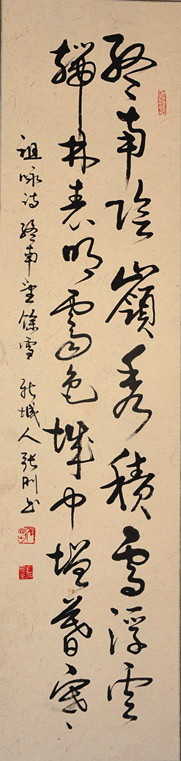 終南陰嶺秀積雪浮雲
端林表明霽色城中增暮寒
祖咏詩終南望餘雪 城人張書